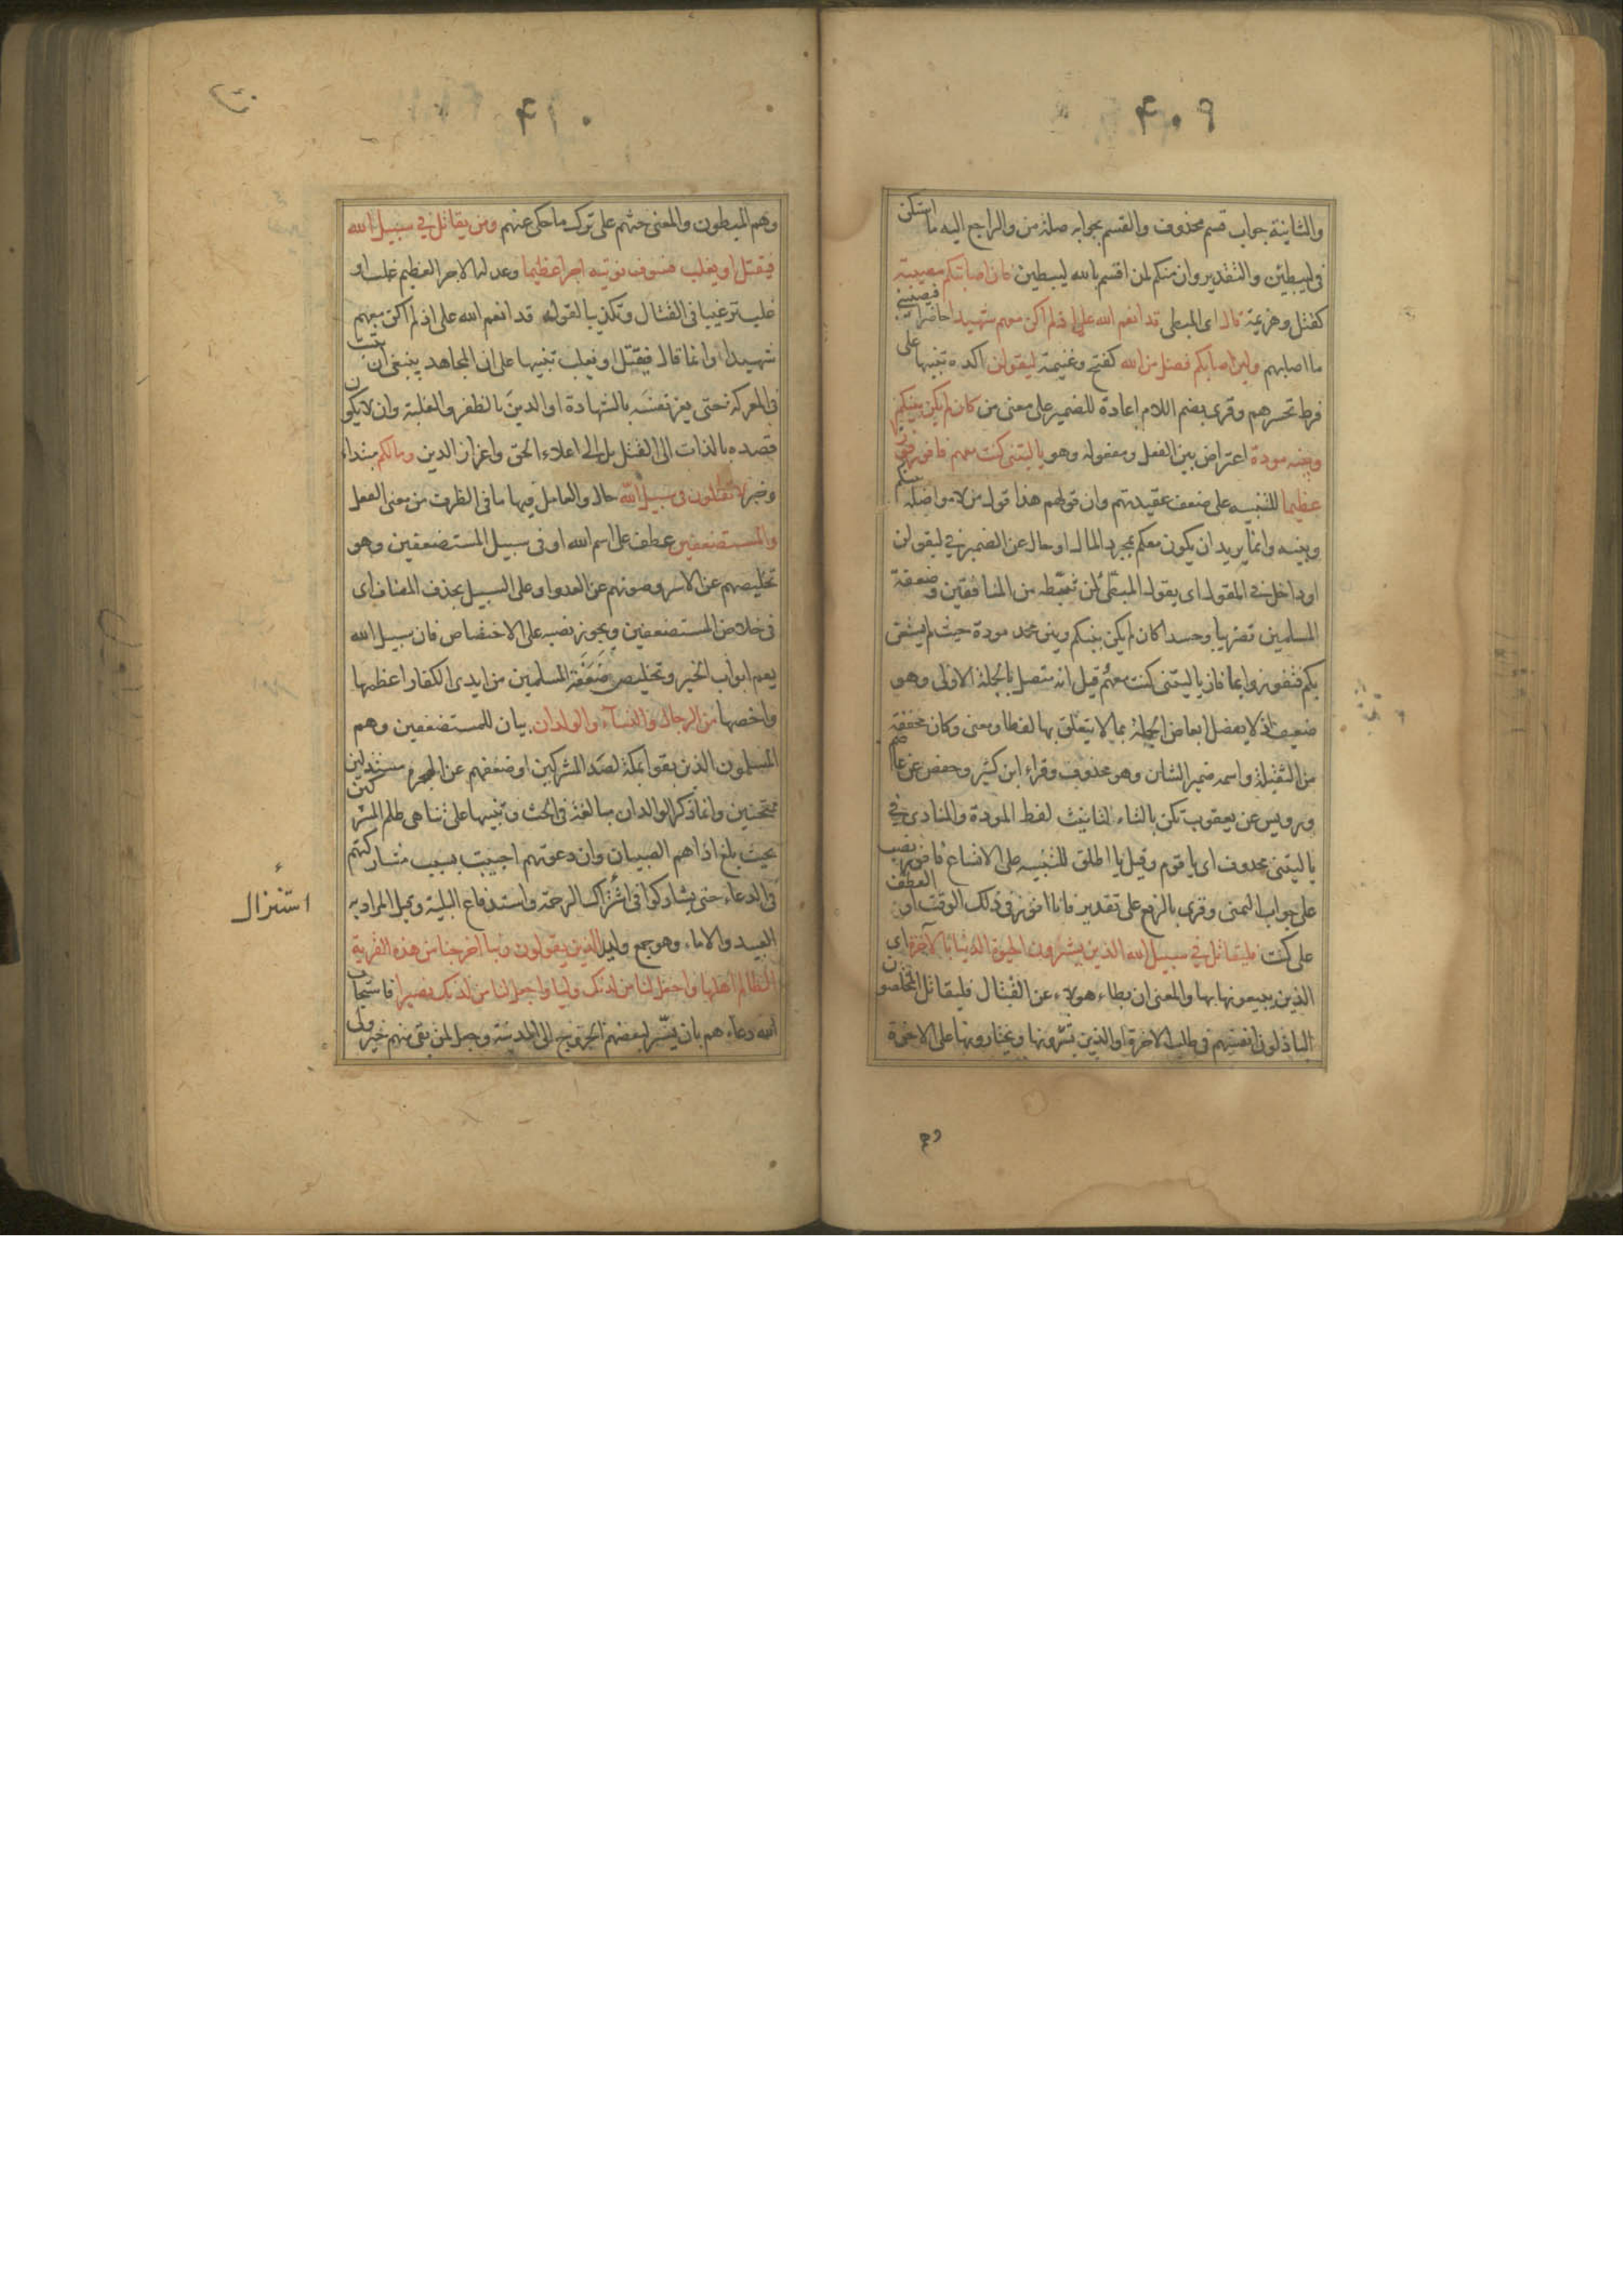 ۴۰۹
والثانية جواب قسم محذوف والقسم بجوابه صلة من والراجع اليه ما استكن
فى ليبطئن والتقدير وان منكم لمن اقسم بالله ليبطئن فان اصابتكم مصيبة
كقتل وهزيمة قال اى المبطى قد انعم الله على اذ لم اكن معهم شهيدا حاضرا فيصيبنى
ما اصابهم ولئن اصابكم فضل من الله كفتح وغنيمة ليقولن اكده تنبيها على
فرط تحسرهم وقرى بضم اللام اعادة للضمير على معنى من كان لم يكن بينكم
وبينه مودة اعتراض بين الفعل ومفعوله وهو يا ليتنى كنت معهم فافوز فوزا
عظيما للتنبيه على ضعف عقيدتهم وان قولهم هذا قول من لا مواصلة بينكم
وبينه وانما يريد ان يكون معكم لمجرد المال او حال عن الضمير فى ليقولن
او داخل فى المقول اى يقول المبطئ لمن تثبطه من المنافقين وضعفة
المسلمين تضريبا وحسدا كان لم يكن بينكم وبين محمد مودة حيث لم يستعن
بكم فتفوزوا بما فاز يا ليتنى كنت معهم قيل انه متصل بالجملة الاولى وهو
ضعيف اذ لا يفصل ابعاض الجملة بما لا يتعلق بها لفظا ومعنى وكان مخففة
من الثقيلة واسمه ضمير الشان وهو محذوف وقراء ابن كثير وحفص عن عاصم
ورويس عن يعقوب تكن بالتاء لتانيث لفظ المودة والمنادى فى
يا ليتنى محذوف اى يا قوم وقيل يا اطلق للتنبيه على الاتساع فافوز نصب
على جواب التمنى وقرى بالرفع على تقدير فانا افوز فى ذلك الوقت او العطف
على كنت فليقاتل فى سبيل الله الذين يشرون الحيوة الدنيا بالآخرة اى
الذين يبيعونها بها والمعنى ان بطاء هولاء عن القتال فليقاتل المخلصون
الباذلون انفسهم فى طلب الاخرة او الذين يشرونها ويختارونها على الاخرة
وهم
۴۱۰
وهم المبطون والمعنى حثهم على ترك ما حكى عنهم ومن يقاتل فى سبيل الله
فيقتل او يغلب فسوف نوتيه اجرا عظيما وعد له الاجر العظيم غلب او
غلب ترغيبا فى القتال وتكذيبا لقوله قد انعم الله على اذ لم اكن معهم
شهيدا وانما قال فيقتل او يغلب تنبيها على ان المجاهد ينبغى ان يثبت
فى المعركة حتى يعز نفسه بالشهادة او الدين بالظفر والغلبة وان لا يكون
قصده بالذات الى القتل بل الى اعلاء الحق واعزاز الدين وما لكم مبتداء
وخبر لا تقتلون فى سبيل الله حال والعامل فيها ما فى الظرف من معنى الفعل
والمستضعفين عطف على اسم الله او فى سبيل المستضعفين وهو
تخليصهم عن الاسر وصونهم عن العدو او على السبيل بحذف المضاف اى
فى خلاص المستضعفين ويجوز نصبه على الاختصاص فان سبيل الله
يعم ابواب الخير وتخليص ضعفة المسلمين من ايدى الكفار اعظمها
واخصها من الرجال والنسآء والولدان بيان للمستضعفين وهم
المسلمون الذين بقوا بمكة لصد المشركين او ضعفهم عن الهجرة مستذلين
ممتحنين وانما ذكر الولدان مبالغة فى الحث وتنبيها على تناهى ظلم المشركين
بحيث بلغ اذاهم الصبيان وان دعوتهم اجيبت بسبب مشاركتهم
فى الدعاء حتى يشاركوا فى استنزال الرحمة واستدفاع البلية وقيل المراد به
العبيد والاماء وهو جمع وليد الذين يقولون ربنا اخرجنا من هذه القرية
الظالم اهلها واجعل لنا من لدنك وليا واجعل لنا من لدنك نصيرا فاستجاب
الله دعاءهم بان يسر لبعضهم الخروج الى المدينة وجعل لمن بقى منهم خير ولى
استنزال